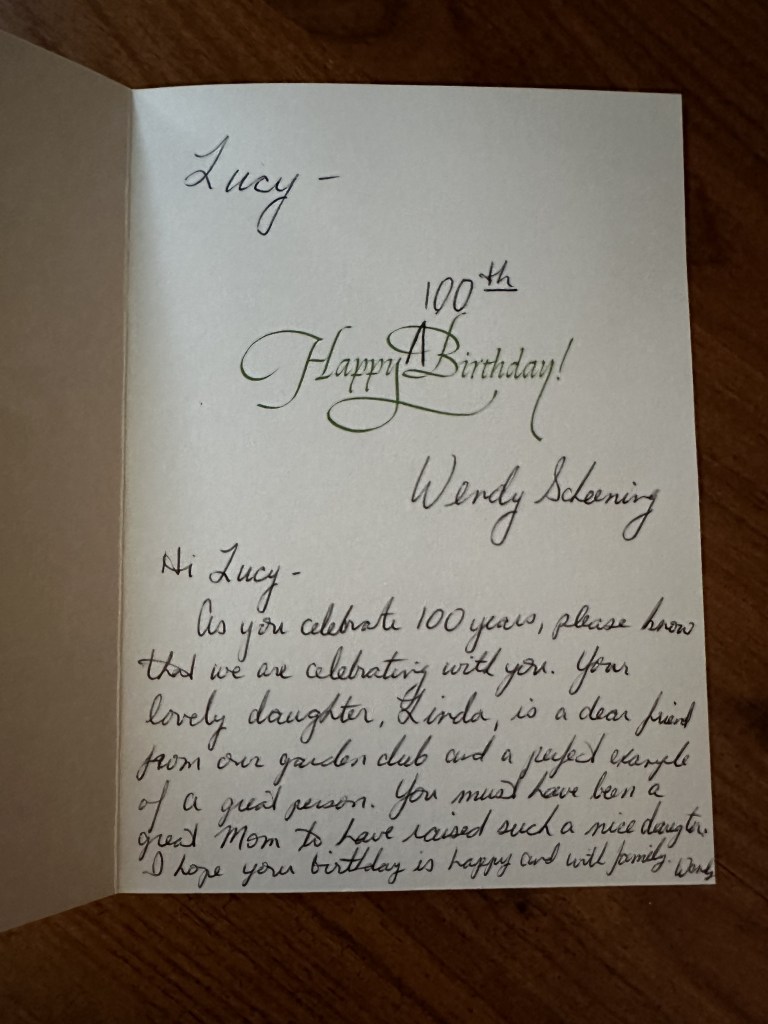 Lucy -
100th
Happy ^ Birthday!
Wendy Scheening
Hi Lucy -
As you celebrate 100 years, please know
that we are celebrating with you. Your
lovely daughter, Linda, is a dear friend
from our garden club and a perfect example
of a great person. You must have been a
great Mom to have raised such a nice daugter.
I hope your birthday is happy and with family. Wendy